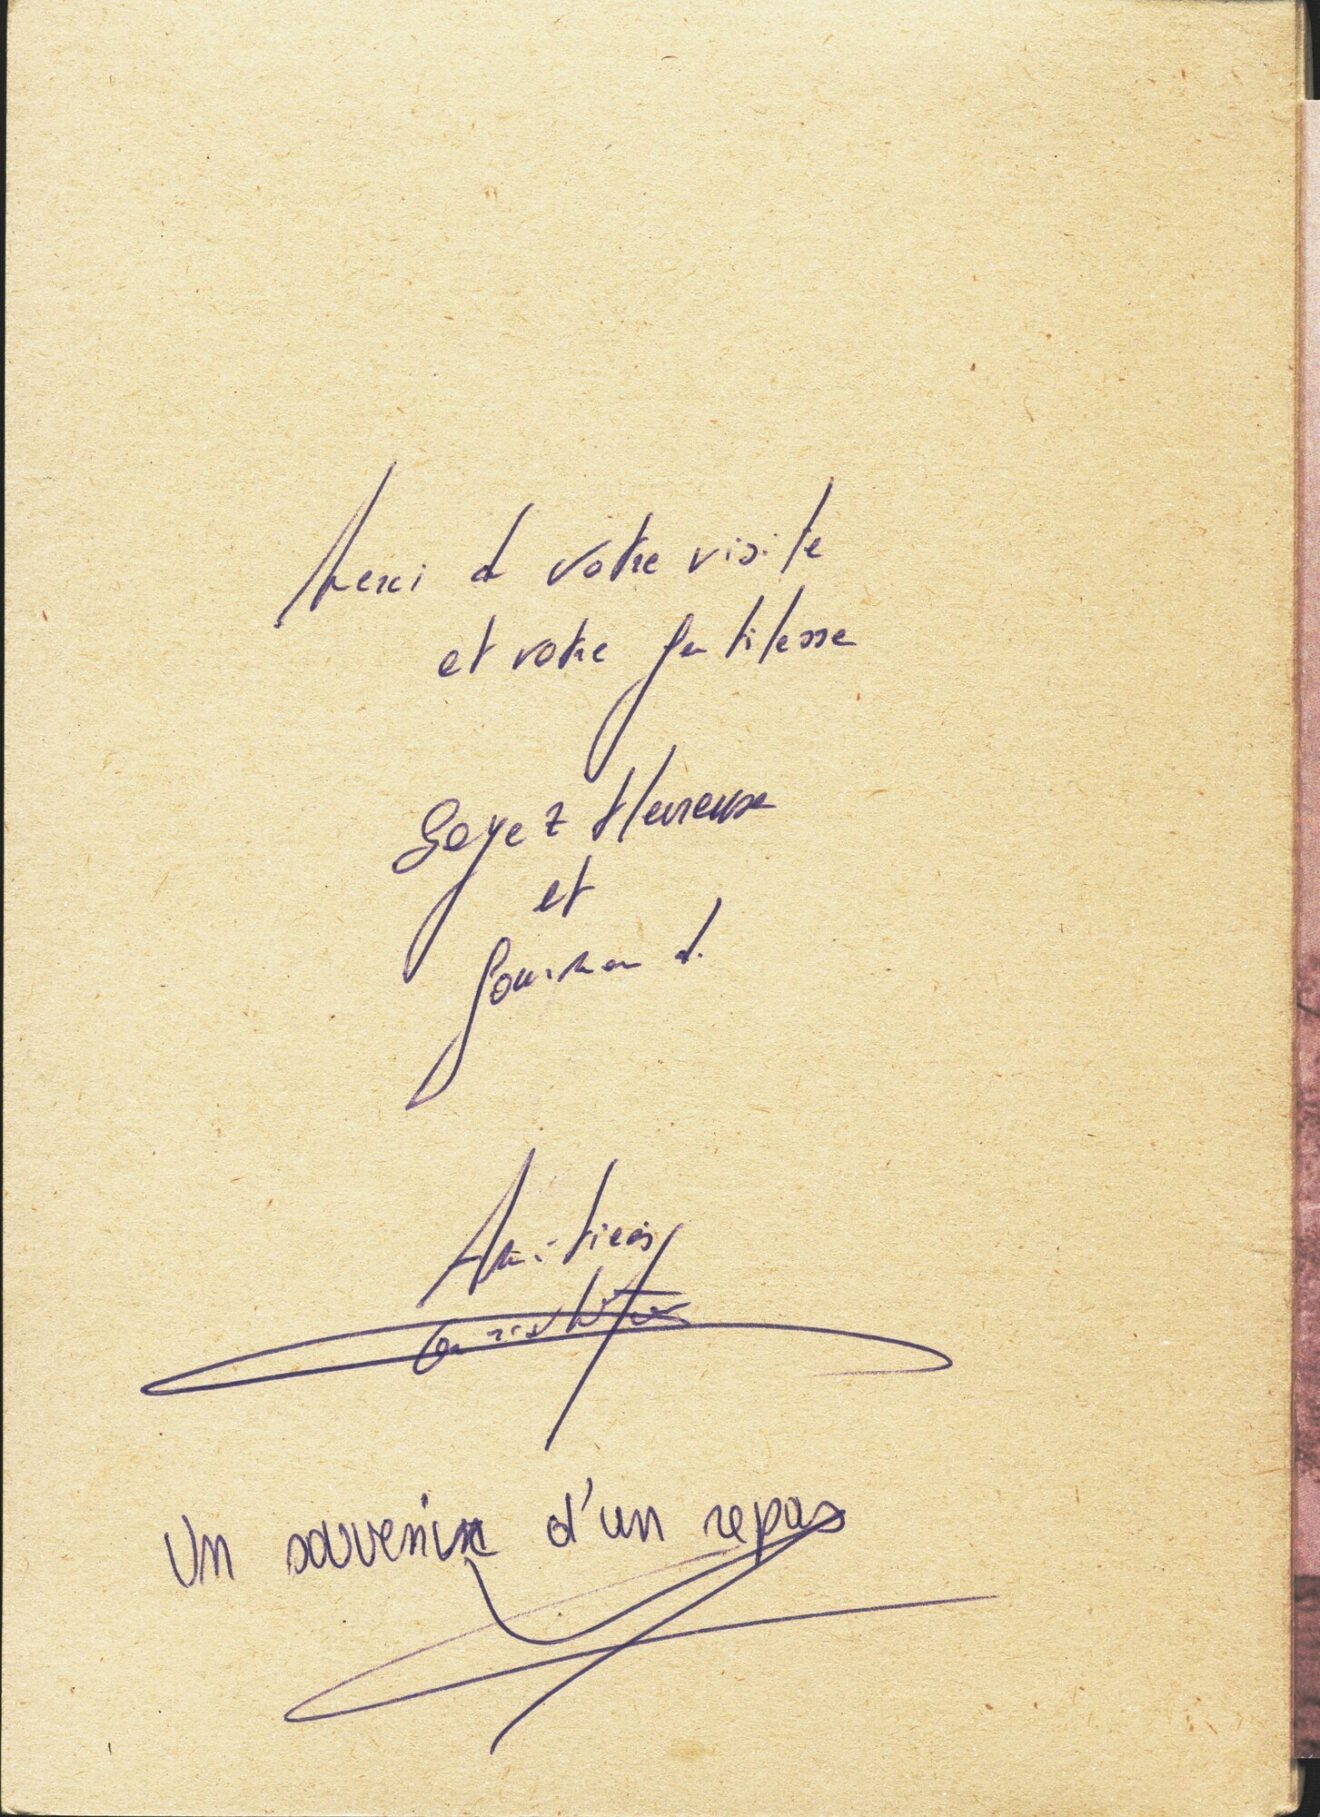 Merci de votre visite
et votre gentilesse
Soyez Heureuse
et
Gourmand.
Amitiées
Un souvenir d'un repas